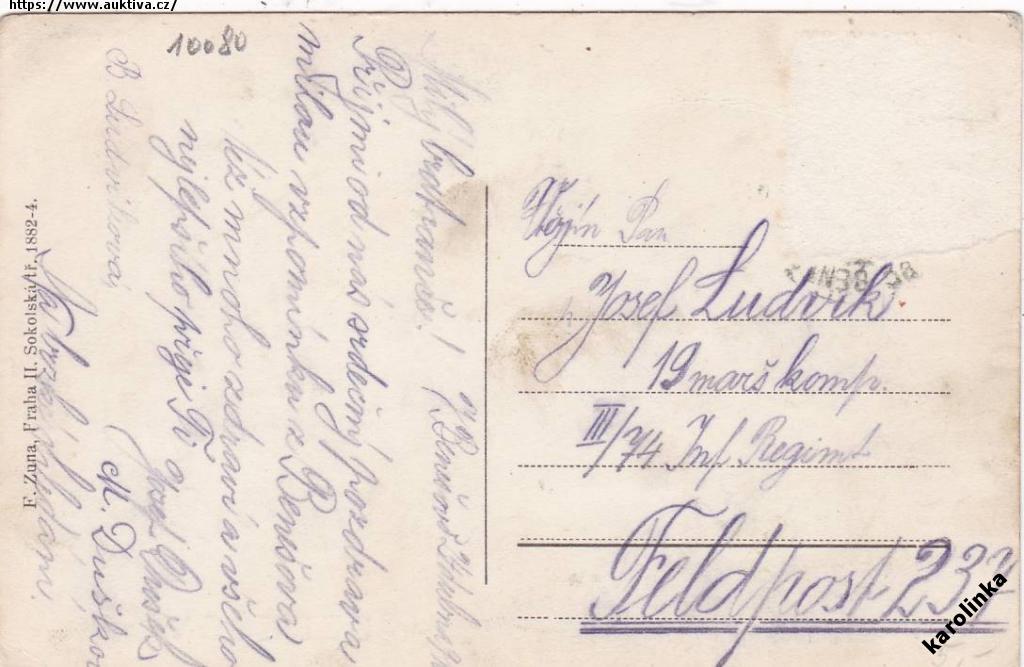 https://www.auktiva.cz/
10080
Milý bratranče!
Přijmi od nás srdečný pozdrav a
milou vzpomínku z Benešova
též mnoho zdraví a všeho
nejlepšího přeje Ti
Josef Dušek
B Ludvíková
M. Dušková
Na brzké shledání.
F. Zuna, Praha II. Sokolská tř. 1882-4.
Pan
Josef Ludvik
19 marš komp.
III/74 Inf Regimt
Feldpost 237
karolinka